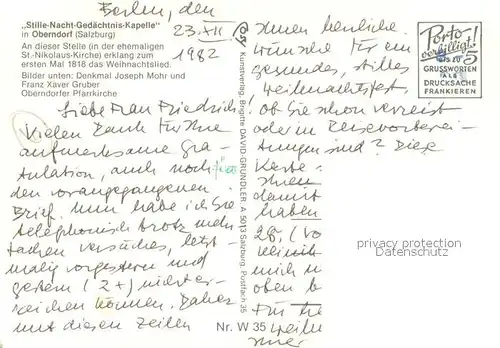 Berlin, den
23.XII
1982
„Stille-Nacht-Gedächtnis-Kapelle"
in Oberndorf (Salzburg)
An dieser Stelle (in der ehemaligen
St.-Nikolaus-Kirche) erklang zum
ersten Mal 1818 das Weihnachtslied.
Bilder unten: Denkmal Joseph Mohr und
Franz Xaver Gruber
Oberndorfer Pfarrkirche
Liebe Frau Friedrich,
Vielen Dank für Ihre
aufmerksame Gra-
tulation, auch noch für
den vorangegangenen
Brief. Nun habe ich Sie
telephonisch trotz mehr
fachen versuches, letzt-
malig vorgestern und
gestern (2+) nicht er-
reichen können. Daher
mit diesen Zeilen
Kunstverlag, Brigitte DAVID-GRÜNDLER, A 5013 Salzburg, Postfach 35
Nr. W 35
Ihnen herzliche
Wünsche für ein
gesundes, stilles
Weihnachtsfest,
Ob Sie schon verreist
oder in Reisevorberei-
tungen sind? Diese
Karte
Ihnen
damit
haben
28. (Vo
mich
oben
Für
Weihn
Porto
verbilligt!
bis zu 5
GRUSSWORTEN
ALS
DRUCKSACHE
FRANKIEREN
privacy protection
Datenschutz